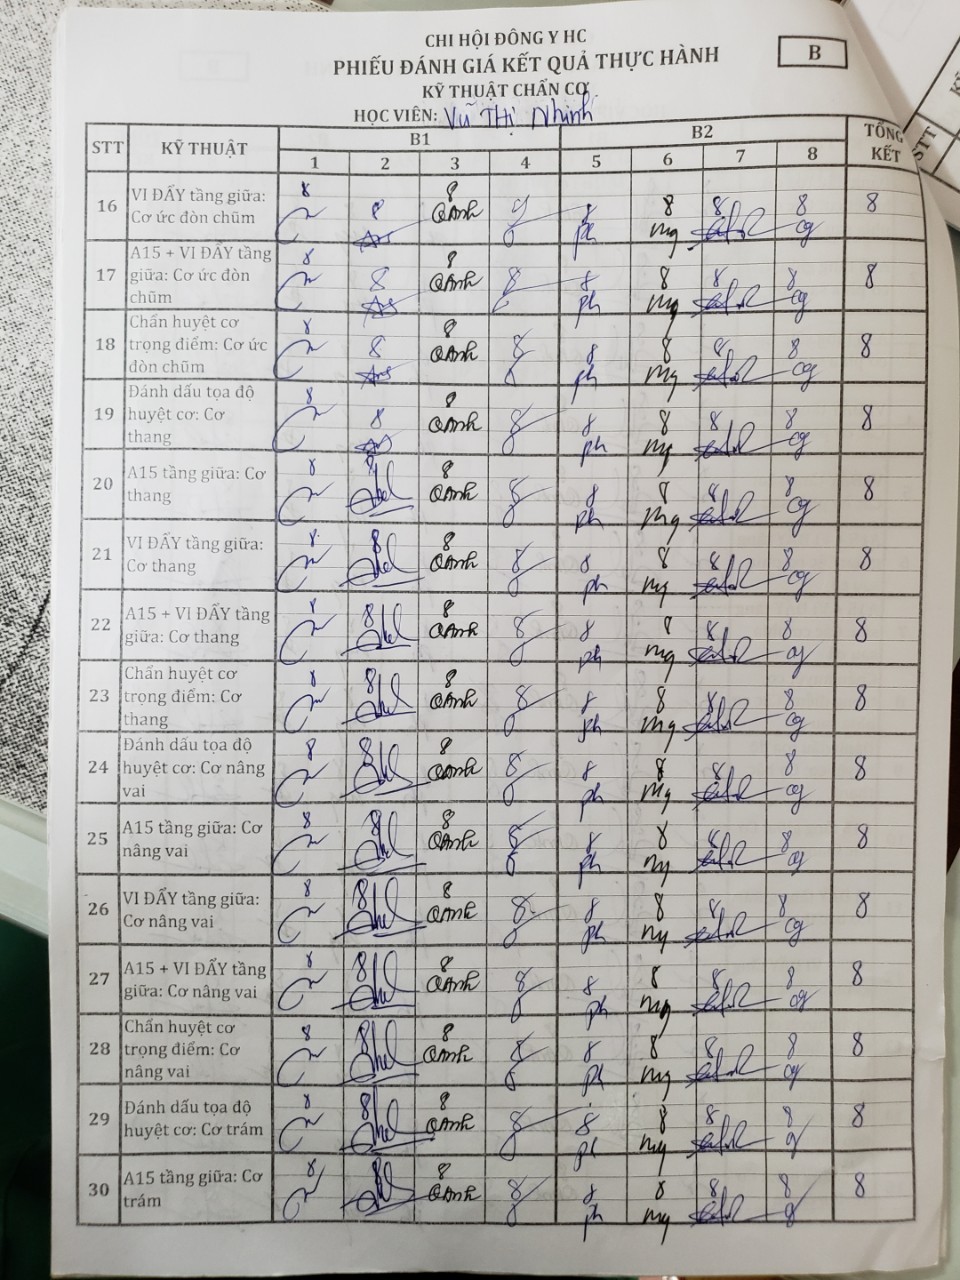 CHI HỘI ĐÔNG Y HC
PHIẾU ĐÁNH GIÁ KẾT QUẢ THỰC HÀNH
B
KỸ THUẬT CHẨN CƠ
HỌC VIÊN: Vũ Thị Nhinh
STT KỸ THUẬT B1 B2 TỔNG KẾT
1 2 3 4 5 6 7 8
16 VI ĐẨY tầng giữa: Cơ ức đòn chũm 8 8 8 8 8 8 8 8
QAnh ph mg cg
17 A15 + VI ĐẨY tầng giữa: Cơ ức đòn chũm 8 8 8 8 8 8 8 8 8
QAnh ph mg cg
18 Chẩn huyệt cơ trọng điểm: Cơ ức đòn chũm 8 8 8 8 8 8 8 8 8
QAnh ph mg cg
19 Đánh dấu tọa độ huyệt cơ: Cơ thang 8 8 8 8 8 8 8 8 8
QAnh ph mg cg
20 A15 tầng giữa: Cơ thang 8 8 8 8 8 8 8 8 8
QAnh ph mg cg
21 VI ĐẨY tầng giữa: Cơ thang 8 8 8 8 8 8 8 8 8
QAnh ph mg cg
22 A15 + VI ĐẨY tầng giữa: Cơ thang 8 8 8 8 8 8 8 8 8
QAnh ph mg cg
23 Chẩn huyệt cơ trọng điểm: Cơ thang 8 8 8 8 8 8 8 8 8
QAnh ph mg cg
24 Đánh dấu tọa độ huyệt cơ: Cơ nâng vai 8 8 8 8 8 8 8 8 8
QAnh ph mg cg
25 A15 tầng giữa: Cơ nâng vai 8 8 8 8 8 8 8 8 8
QAnh ph mg cg
26 VI ĐẨY tầng giữa: Cơ nâng vai 8 8 8 8 8 8 8 8 8
QAnh ph mg cg
27 A15 + VI ĐẨY tầng giữa: Cơ nâng vai 8 8 8 8 8 8 8 8 8
QAnh ph mg cg
28 Chẩn huyệt cơ trọng điểm: Cơ nâng vai 8 8 8 8 8 8 8 8 8
QAnh ph mg cg
29 Đánh dấu tọa độ huyệt cơ: Cơ trám 8 8 8 8 8 8 8 8 8
QAnh ph mg
30 A15 tầng giữa: Cơ trám 8 8 8 8 8 8 8 8 8
QAnh ph mg
STT